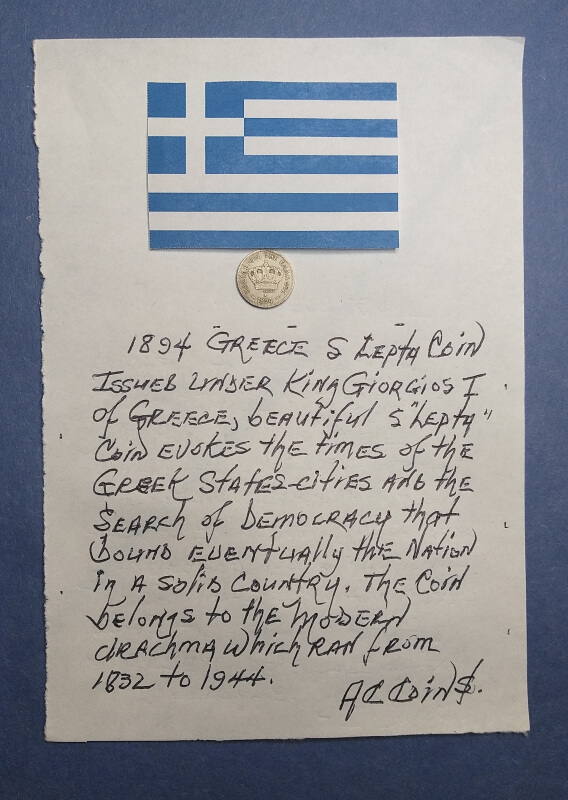 1894 "GREECE" 5 LEPTA COIN
ISSUED UNDER KING GIORGIOS I
of GREECE, beautiful 5 "LEPTA"
COIN EVOKES the times of the
GREEK STATES-CITIES AND the
SEARCH of DEMOCRACY that
bound EVENTUALLY the NATION
in A SOLID COUNTRY. THE COIN
belongs to the MODERN
drachma which RAN from
1832 to 1944.
AC COIN$.